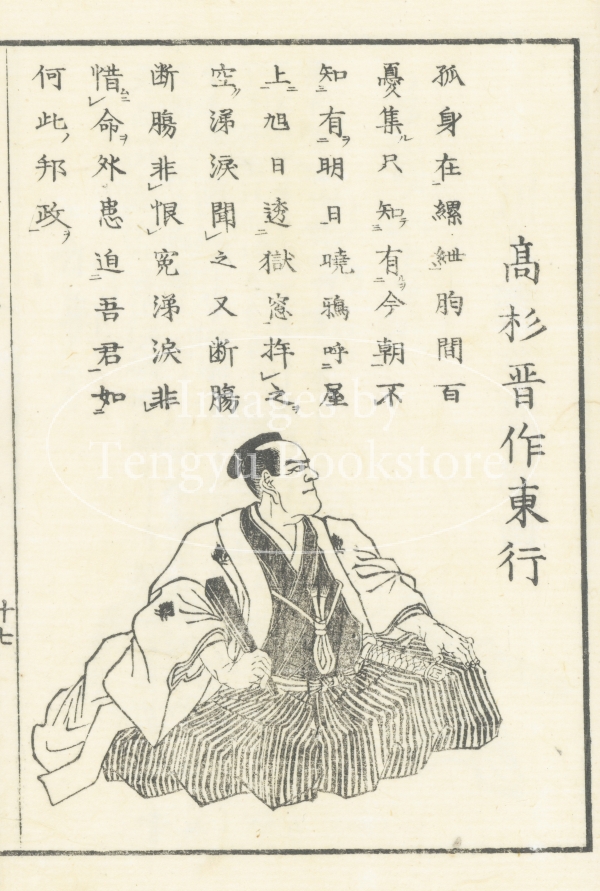 高杉晋作東行
孤身在縲紲胸間百
憂集只知有今朝不
知有明日曉鴉呼屋
上旭日透獄窓拝之
空涕涙聞之又断膓
断膓非恨冤涕涙非
惜命外患迫吾君如
何此邦政
十七
Images by
Tengyu Bookstore